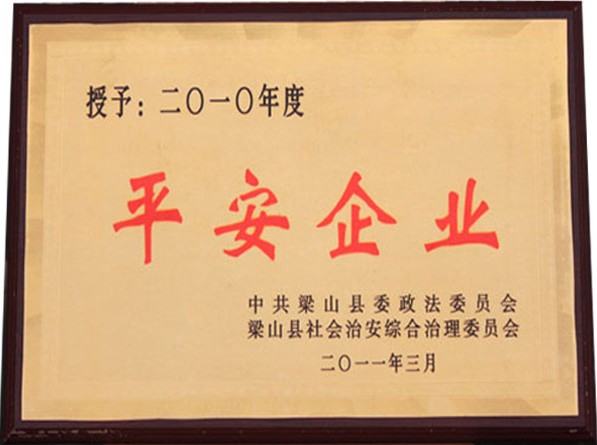 授予：二〇一〇年度
平安企业
中共梁山县委政法委员会
梁山县社会治安综合治理委员会
二〇一一年三月